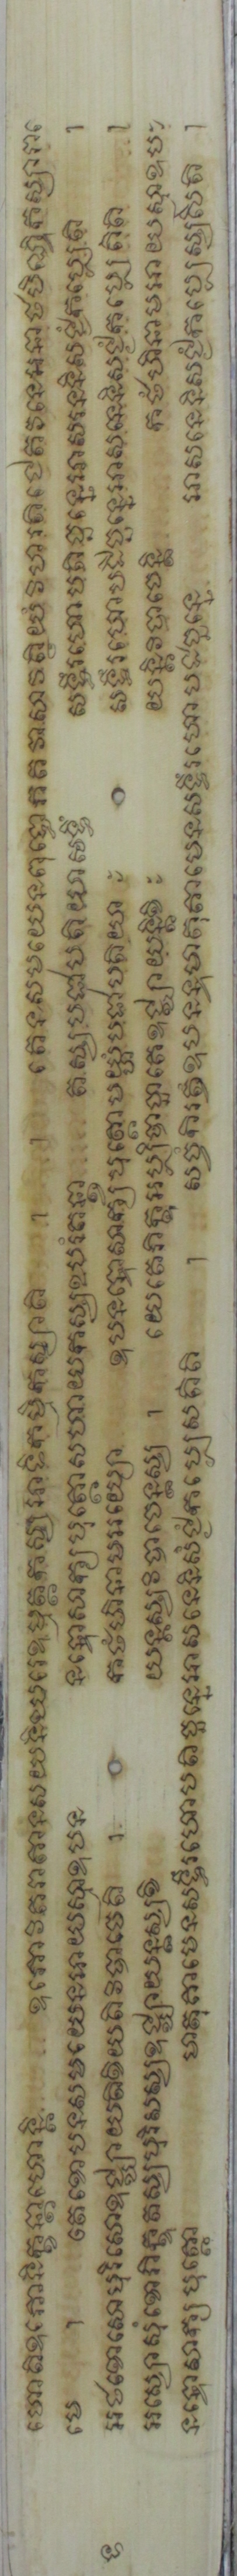 ហោតិឧភោនិក្ខន្តាហោន្តិ ឧភោវីតរាគានសយនិឃរេឧម្មត្តកស្សអាទិកម្មិកស្សាតិ ។ ។ តេនសមយេនពុទ្ធោភគវាសាវត្ថិយំវិហរតិជេតវនេអនាថបិណ្ឌិកស្សារា
មេ ។ តេនខោបនសមយេនអាយស្មាឧបន ន្ទោសាក្យបុត្តោសហាយកស្សឃរំគន្ត្វា តស្សបជាបតិយាសទ្ធឹ សទ្ធឹរហោបដិច្ឆន្នេអាសនេនិសជ្ជំកប្បេតិ ។
អថខោសោបុរិសោឧជ្ឈាយតិខិយតិវិបាចេតិ ។ កថំហិនាមអយ្យោ ឧបនន្ទោសាក្យបុត្តោមយ្ហំបជាបតិយា សទ្ធឹរហោបដិច្ឆន្នេអាសនេនិសជ្ជំកប្បេតីតិ ។
អស្សោសុំខោភិក្ខូតស្សបុរិសស្សឧជ្ឈាយន្តស្សខិ យន្តស្សវិបាចេន្តស្ស ។ យេតេភិក្ខូអប្បិច្ឆាតេឧជ្ឈាយន្តិខិ យន្តិវិបាចេន្តិ កថំហិនាមអាយស្មាឧប
នន្ទោសាក្យបុត្តោ មាតុគាមេនសទ្ធឹរហោបដិច្ឆន្នេអាសនេនិសជ្ជំកប្បេសតីតិ ។ សច្ចំកិរត្វំឧបនន្ទមាតុគាមេនសទ្ធឹរហោបដិច្ឆន្នេ អាសនេនិសជ្ជំកប្បេស្សសីតិ ។